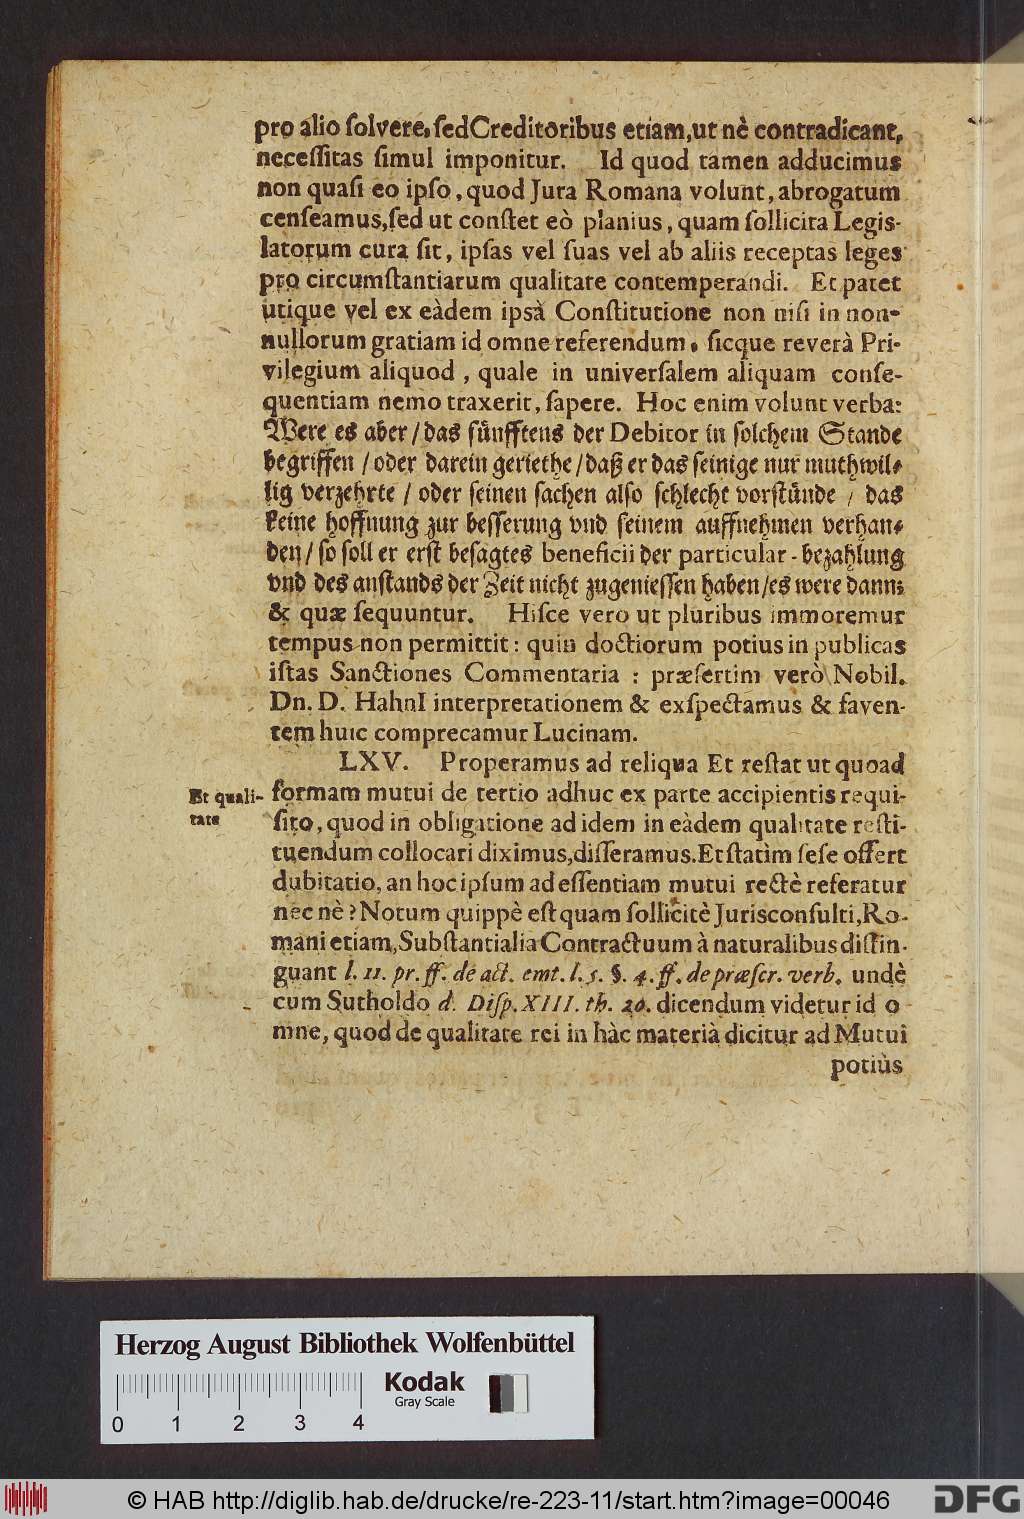 pro alio ſolvere, ſed Creditoribus etiam, ut nè contradicant,
neceſſitas ſimul imponitur. Id quod tamen adducimus
non quaſi eo ipſo, quod Jura Romana volunt, abrogatum
cenſeamus, ſed ut conſtet eò planius, quam ſollicita Legis-
latorum cura ſit, ipſas vel ſuas vel ab aliis receptas leges
pro circumſtantiarum qualitate contemperandi. Et patet
utique vel ex eàdem ipsà Conſtitutione non niſi in non-
nullorum gratiam id omne referendum, ſicque reverà Pri-
vilegium aliquod, quale in univerſalem aliquam conſe-
quentiam nemo traxerit, ſapere. Hoc enim volunt verba:
Were es aber / das fünfftens der Debitor in ſolchem Stande
begriffen / oder darein geriethe / daß er das ſeinige nur muthwil-
lig verzehrte / oder ſeinen ſachen alſo ſchlecht vorſtünde / das
keine hoffnung zur beſſerung vnd ſeinem auffnehmen verhan-
den / ſo ſoll er erſt beſagtes beneficii der particular-bezahlung
vnd des anſtands der Zeit nicht zugenieſſen haben / es were dann:
& quæ ſequuntur. Hiſce vero ut pluribus immoremur
tempus non permittit: quin doctiorum potius in publicas
iſtas Sanctiones Commentaria: præſertim verò Nobil.
Dn. D. HahnI interpretationem & exſpectamus & faven-
tem huic comprecamur Lucinam.
LXV. Properamus ad reliqua Et reſtat ut quoad
Et quali-
tate
formam mutui de tertio adhuc ex parte accipientis requi-
ſito, quod in obligatione ad idem in eàdem qualitate reſti-
tuendum collocari diximus, diſſeramus. Et ſtatìm ſeſe offert
dubitatio, an hoc ipſum ad eſſentiam mutui rectè referatur
nec nè? Notum quippè eſt quam ſollicitè Jurisconſulti, Ro-
mani etiam, Subſtantialia Contractuum à naturalibus diſtin-
guant l. 11. pr. ff. de act. emt. l. 5. §. 4. ff. de præſcr. verb. undè
cum Sutholdo d. Diſp. XIII. th. 20. dicendum videtur id o
mne, quod de qualitate rei in hàc materià dicitur ad Mutui
potiùs
Herzog August Bibliothek Wolfenbüttel
Kodak
Gray Scale
0 1 2 3 4
© HAB http://diglib.hab.de/drucke/re-223-11/start.htm?image=00046
DFG